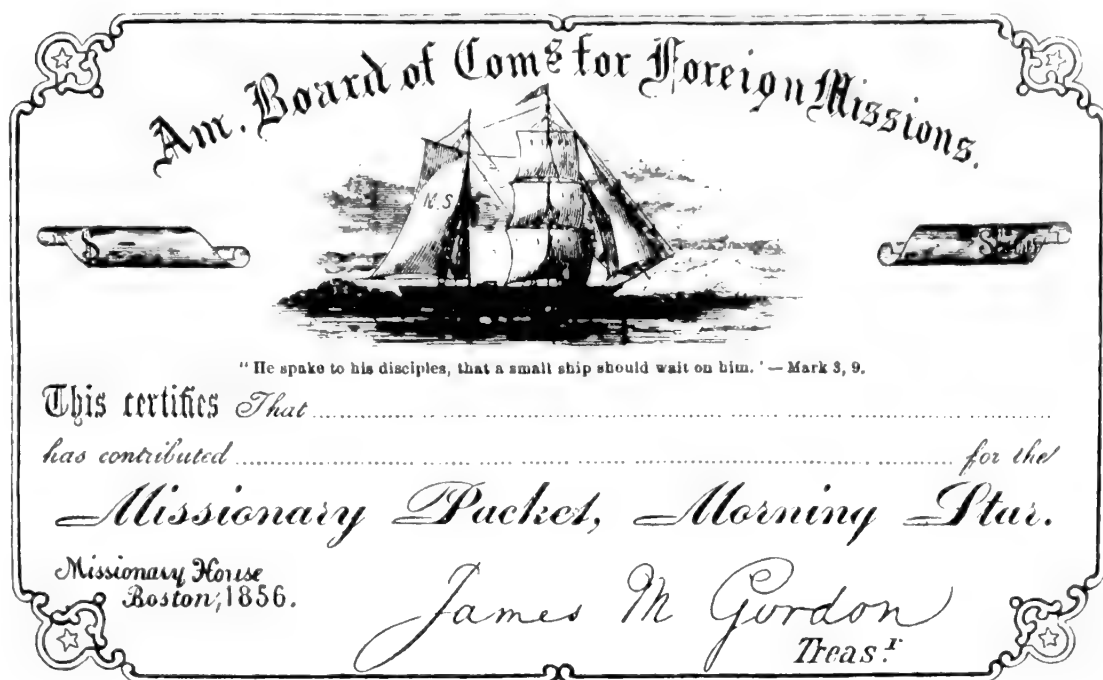 Am. Board of Coms for Foreign Missions.
M.S
$
"He spake to his disciples, that a small ship should wait on him.' — Mark 3, 9.
This certifies That
has contributed for the
Missionary Packet, Morning Star.
Missionary House
Boston, 1856.
James M Gordon
Treasr